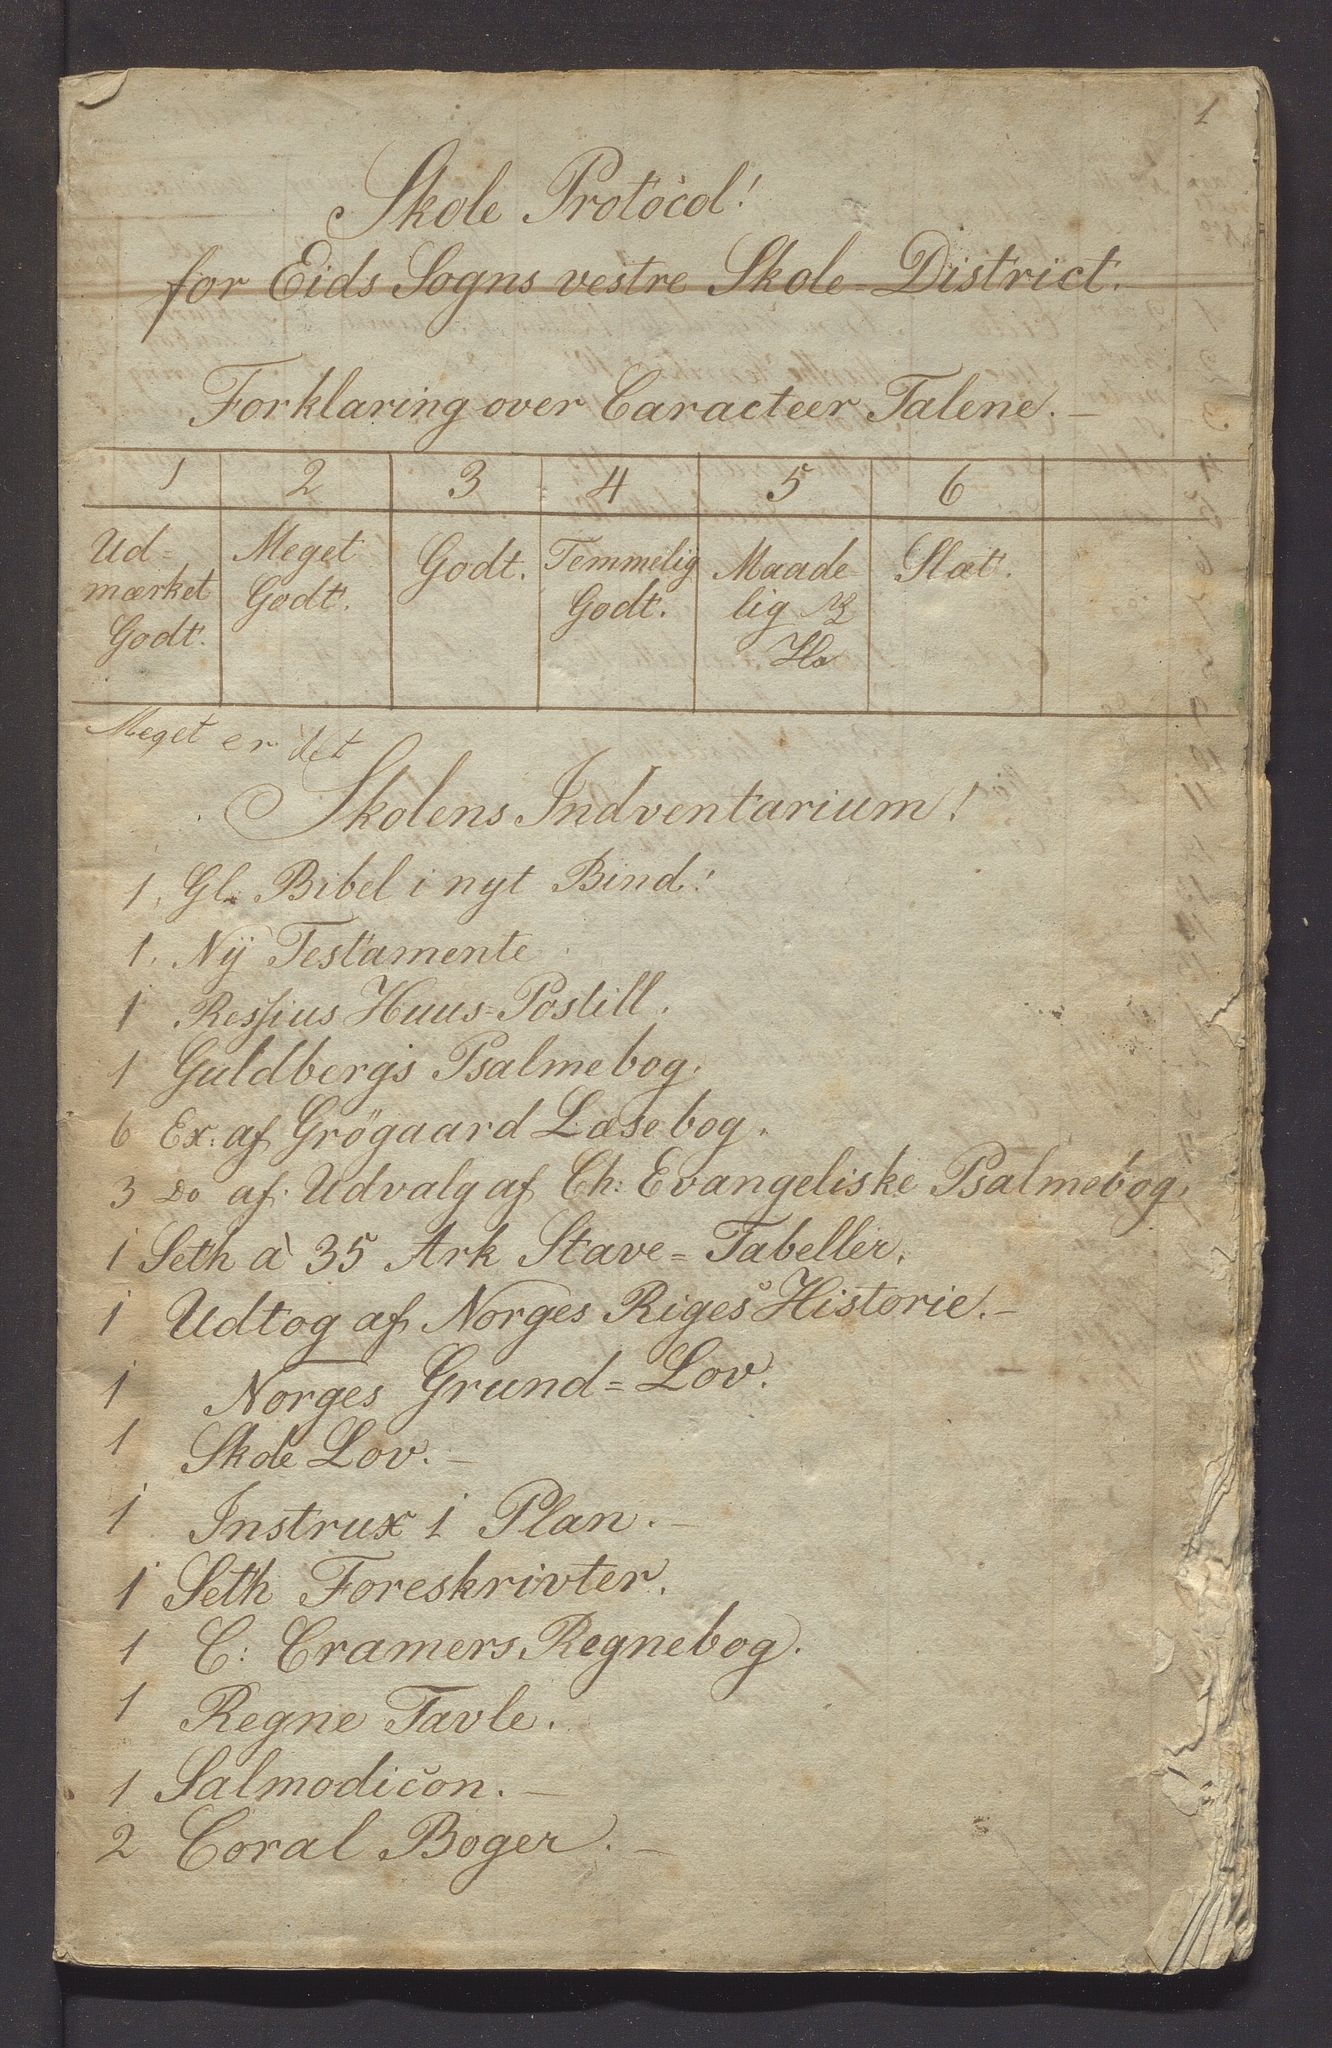 1
Skole Protocol!
for Eids Sogns vestre Skole-District.
Forklaring over Caracteer Talene.
1 2 3 4 5 6
Ud= Meget Godt. Temmelig Maade= Slæt.
mærket Godt. Godt. lig
Godt.
Meget er det
Skolens Indventarium!
1, Gl. Bibel i nyt Bind!
1, Nÿ Testamente
1 Ressius Huus=Postill.
1 Guldbergs Psalmebog.
6 Ex: af Grögaard Læsebog.
3 Do af Udvalg af Ch: Evangeliske Psalmebog.
1 Seth à 35 Ark Stave=Tabeller.
1 Udtog af Norges Riges Historie.
1 Norges Grund=Lov.
1 Skole Lov.
1 Instrux i Plan.
1 Seth Foreskrivter.
1 C: Cramers Regnebog.
1 Regne Tavle.
1 Salmodicon.
2 Coral Boger.